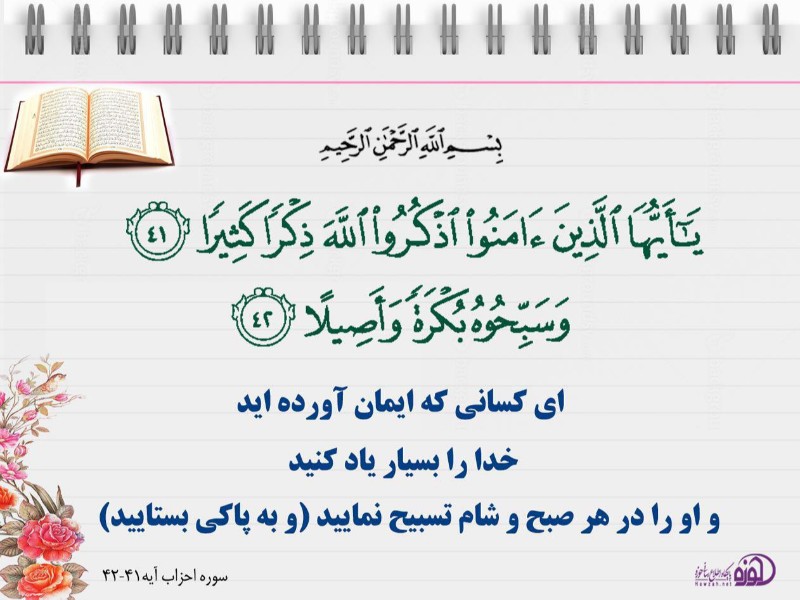 بِسْمِ ٱللَّهِ ٱلرَّحْمَٰنِ ٱلرَّحِيمِ
يَـٰٓأَيُّهَا ٱلَّذِينَ ءَامَنُوا۟ ٱذْكُرُوا۟ ٱللَّهَ ذِكْرًا كَثِيرًا ٤١
وَسَبِّحُوهُ بُكْرَةً وَأَصِيلًا ٤٢
ای کسانی که ایمان آورده اید
خدا را بسیار یاد کنید
و او را در هر صبح و شام تسبیح نمایید (و به پاکی بستایید)
سوره احزاب آیه۴۱-۴۲
حوزه
Hawzah.net